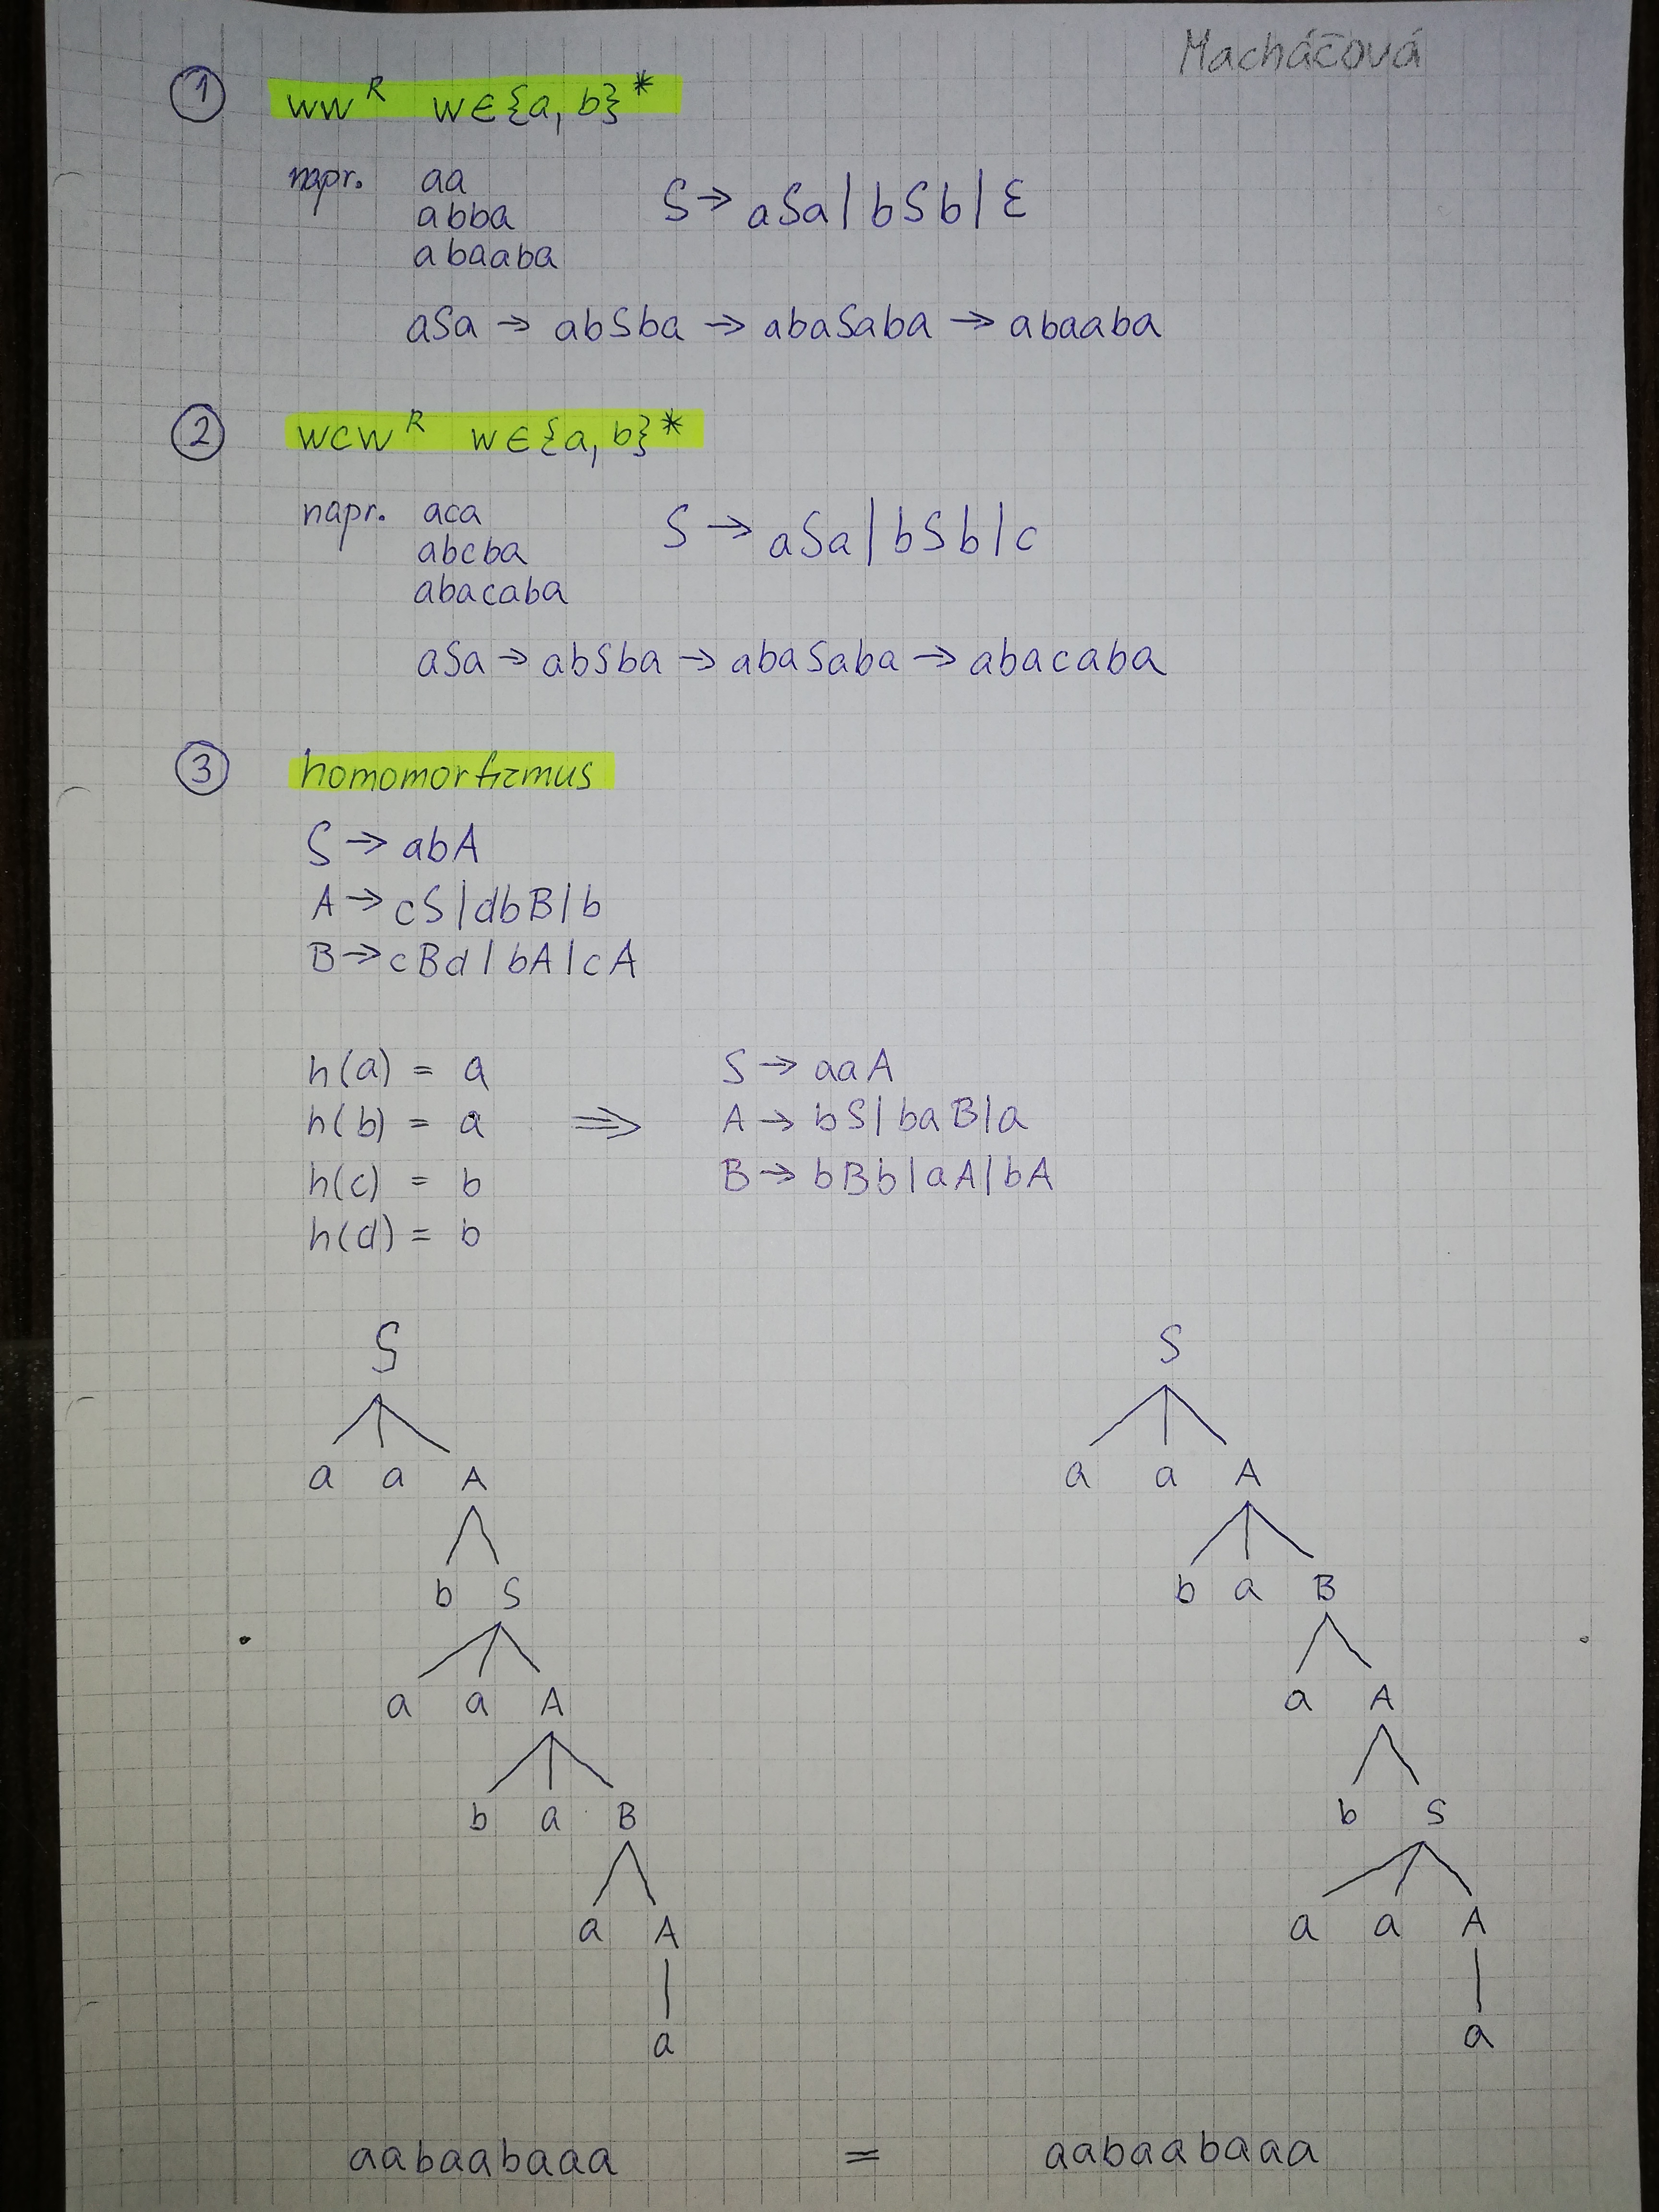 Macháčová
① ww^R w∈{a, b}*
napr. aa
abba
abaaba
S → aSa | bSb | ε
aSa → abSba → abaSaba → abaaba
② wcw^R w∈{a, b}*
napr. aca
abcba
abacaba
S → aSa | bSb | c
aSa → abSba → abaSaba → abacaba
③ homomorfizmus
S → abA
A → cS | dbB | b
B → cBd | bA | cA
h(a) = a
h(b) = a
h(c) = b
h(d) = b
⇒
S → aaA
A → bS | baB | a
B → bBb | aA | bA
S
a a A
b S
a a A
b a B
a A
a
S
a a A
b a B
a A
b S
a a A
a
aabaabaaa = aabaabaaa